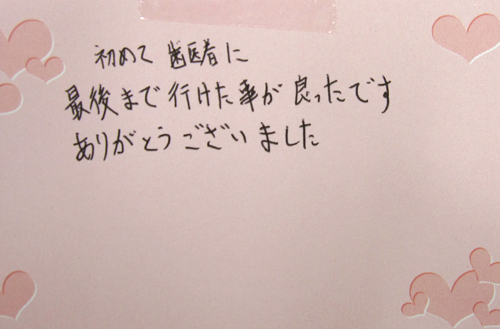 初めて歯医者に
最後まで行けた事が良ったです
ありがとうございました